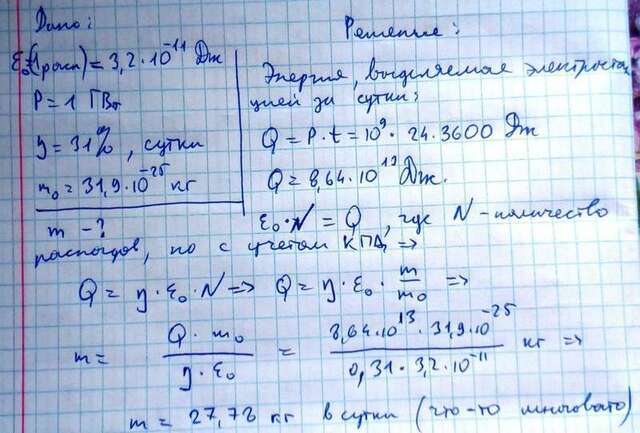 Дано:
Решение:
ε₀(1 расп) = 3,2·10⁻¹¹ Дж
P = 1 ГВт
η = 31%, сутки
m₀ = 31,9·10⁻²⁵ кг
m - ?
Энергия, выделяемая электростан
цией за сутки:
Q = P·t = 10⁹· 24·3600 Дж
Q = 8,64·10¹³ Дж.
ε₀·N = Q, где N - количество
распадов, но с учетом КПД =>
Q = η·ε₀·N => Q = η·ε₀· m/m₀ =>
m = Q·m₀/η·ε₀ = 8,64·10¹³·31,9·10⁻²⁵/0,31·3,2·10⁻¹¹ кг =>
m = 27,78 кг в сутки (что-то многовато)